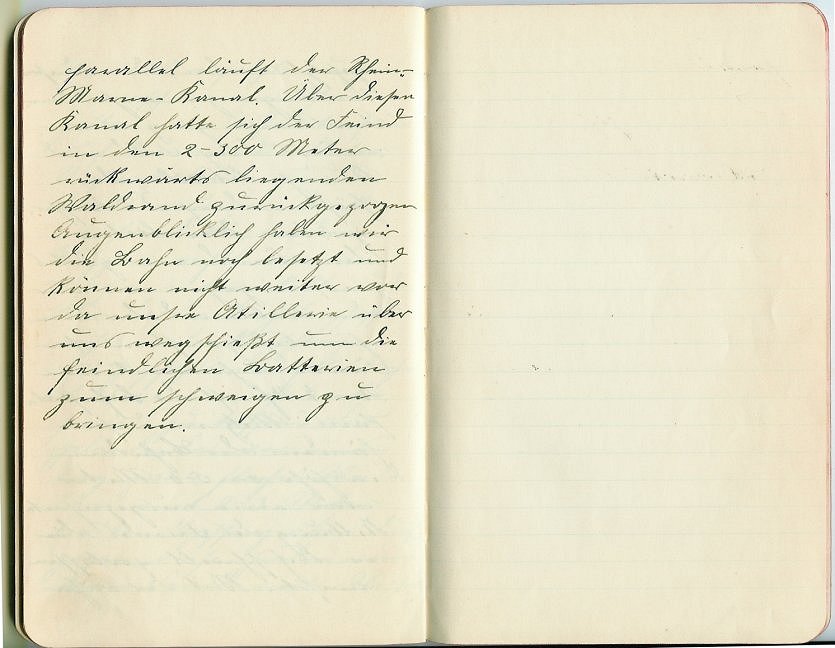 parallel läuft der Rhein-
Marne-Kanal. Über diesen
Kanal hatte sich der Feind
in den 2-300 Meter
rückwärts liegenden
Waldrand zurückgezogen
Augenblicklich haben wir
die Bahn noch besetzt und
können nicht weiter vor
da unsre Atillerie über
uns wegschießt um die
feindlichen Batterien
zum schweigen zu
bringen.